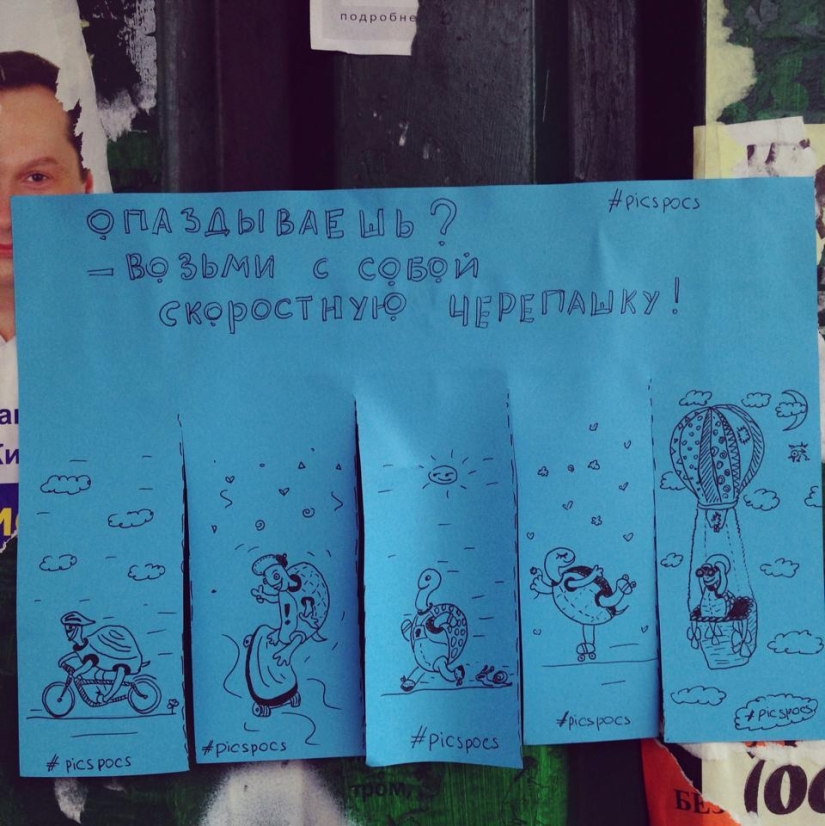 подробне
#picspocs
ОПАЗДЫВАЕШЬ?
– ВОЗЬМИ С СОБОЙ
СКОРОСТНУЮ ЧЕРЕПАШКУ!
#picspocs
#picspocs
#picspocs
#picspocs
#picspocs
тром,
БЕЗ
100